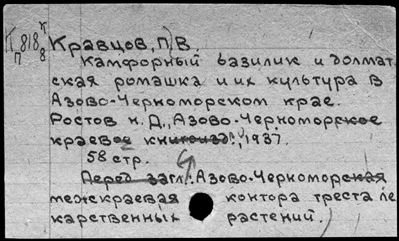 К
П 818
8
Кравцов, П. В.
Камфорный базилик и долмат-
ская ромашка и их культура в
Азово-Черноморском крае.
Ростов н. Д., Азово-Черноморское
краевое книгоизд., 1937.
58 стр.
Перед загл.: Азово-Черноморская
межкраевая контора треста ле
карственных растений.)